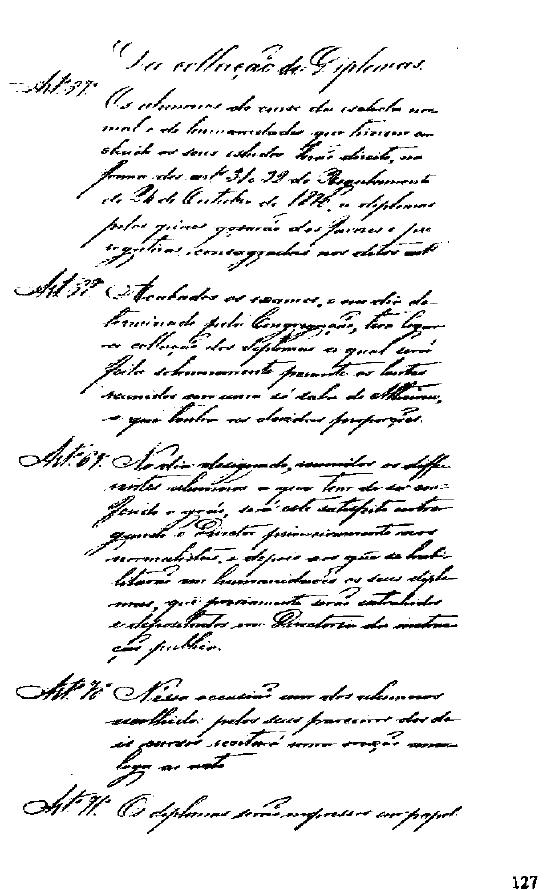 Da collação de Diplomas.
Art.º 57º
Os alumnos do curso da escola nor-
mal e de humanidades que tiverem con-
cluido os seus estudos terão direito, na
forma dos artºs 31 e 32 do Regulamento
de 24 de Outubro de 1876, a diplomas
pelos quaes gosarão dos favores e pre-
rogativas consagradas nos ditos artºs
Art. Acabados os exames, e em dia de-
terminado pela Congregação, terá logar
a collação dos diplomas a qual será
feita solemnemente perante os lentes
reunidos em uma só sala do Atheneu,
e que tenha as devidas proporções.
Art.º 69. No dia designado, reunidos os diffe-
rentes alumnos a quem tem de se con-
ferir o gráo, será este satisfeito entre-
gando o Director primeiramente aos
normalistas, e depois aos que se habi-
litarão em humanidades os seus diplo-
mas, que previamente serão
e depositados na Directoria da instruc-
ção publica.
Art.º 70 Nessa occasião um dos alumnos
escolhido pelos seus parceiros dos do-
is cursos recitará uma oração ana-
loga ao acto
Art.º 71. Os diplomas serão impressos em papel
127